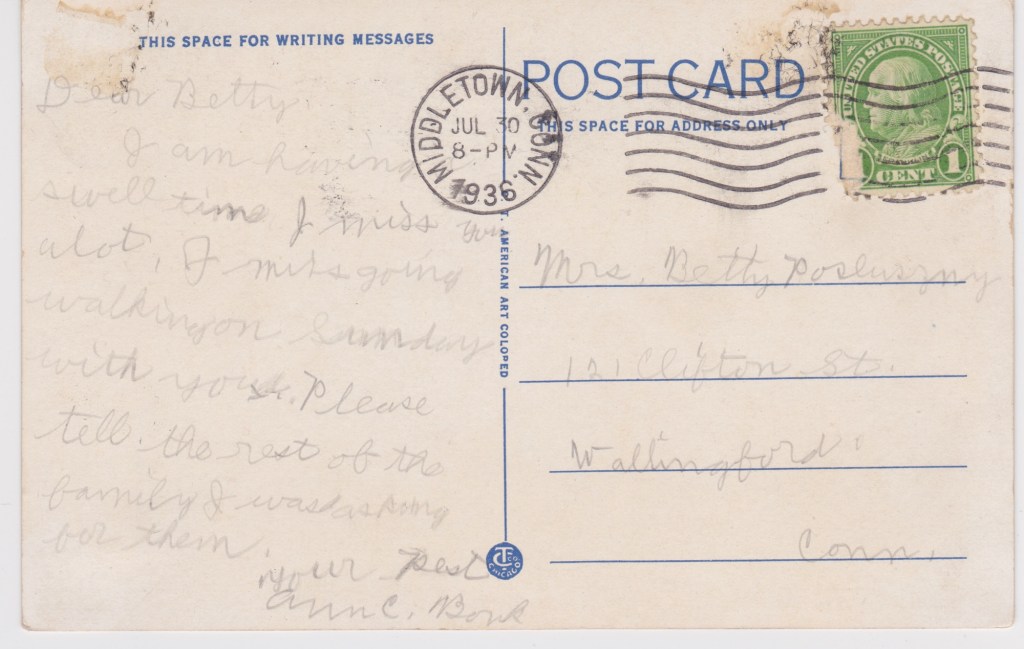 THIS SPACE FOR WRITING MESSAGES
Dear Betty,
I am having a
swell time I miss you
alot, I miss going
walking on Sunday
with you. Please
tell the rest of the
family I was asking
for them.
your pest
Ann C. Bonk
MIDDLETOWN, CONN.
JUL 30
8-PM
1936
T. AMERICAN ART COLORED
CT CO.
CHICAGO
POST CARD
THIS SPACE FOR ADDRESS ONLY
UNITED STATES POSTAGE
CENT 1
Mrs. Betty Posluszny
121 Clifton St.
Wallingford,
Conn.